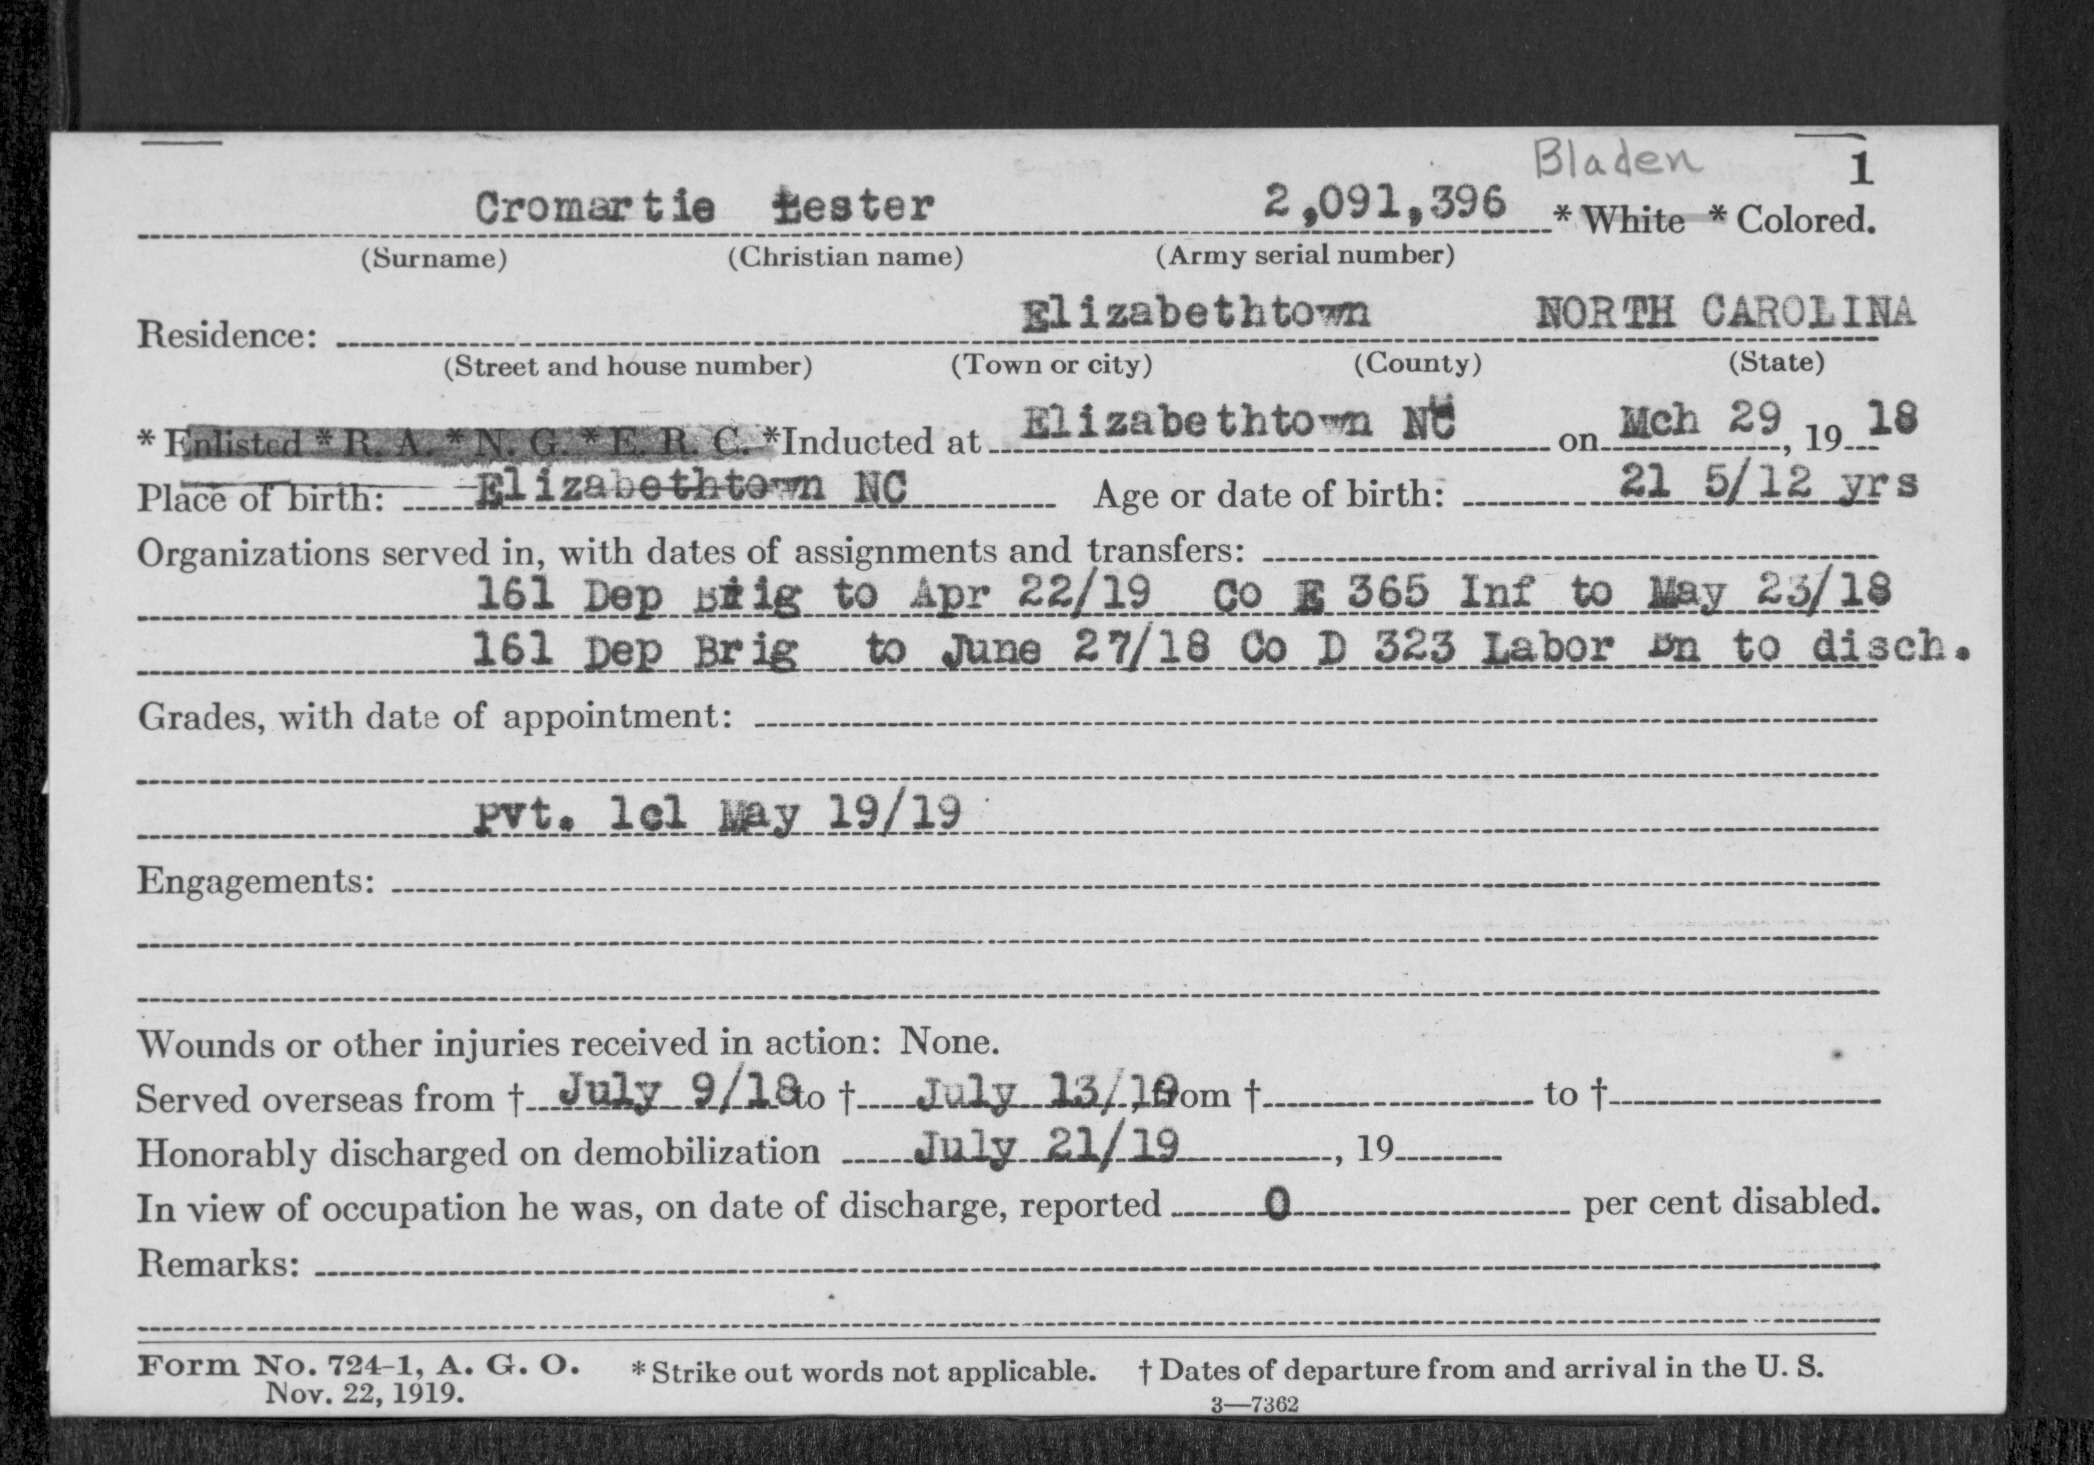 Bladen 1
Cromartie Lester 2,091,396 * White * Colored.
(Surname) (Christian name) (Army serial number)
Elizabethtown NORTH CAROLINA
Residence:
(Street and house number) (Town or city) (County) (State)
* Enlisted * R. A. * N. G. * E. R. C. *Inducted at Elizabethtown NC on Mch 29, 1918
Place of birth: Elizabethtown NC Age or date of birth: 21 5/12 yrs
Organizations served in, with dates of assignments and transfers:
161 Dep Brig to Apr 22/19 Co E 365 Inf to May 23/18
161 Dep Brig to June 27/18 Co D 323 Labor Bn to disch.
Grades, with date of appointment:
Pvt. 1cl May 19/19
Engagements:
Wounds or other injuries received in action: None.
Served overseas from † July 9/18 to † July 13/19, from † to †
Honorably discharged on demobilization July 21/19, 19
In view of occupation he was, on date of discharge, reported 0 per cent disabled.
Remarks:
Form No. 724-1, A. G. O. * Strike out words not applicable. † Dates of departure from and arrival in the U. S.
Nov. 22, 1919. 3—7362